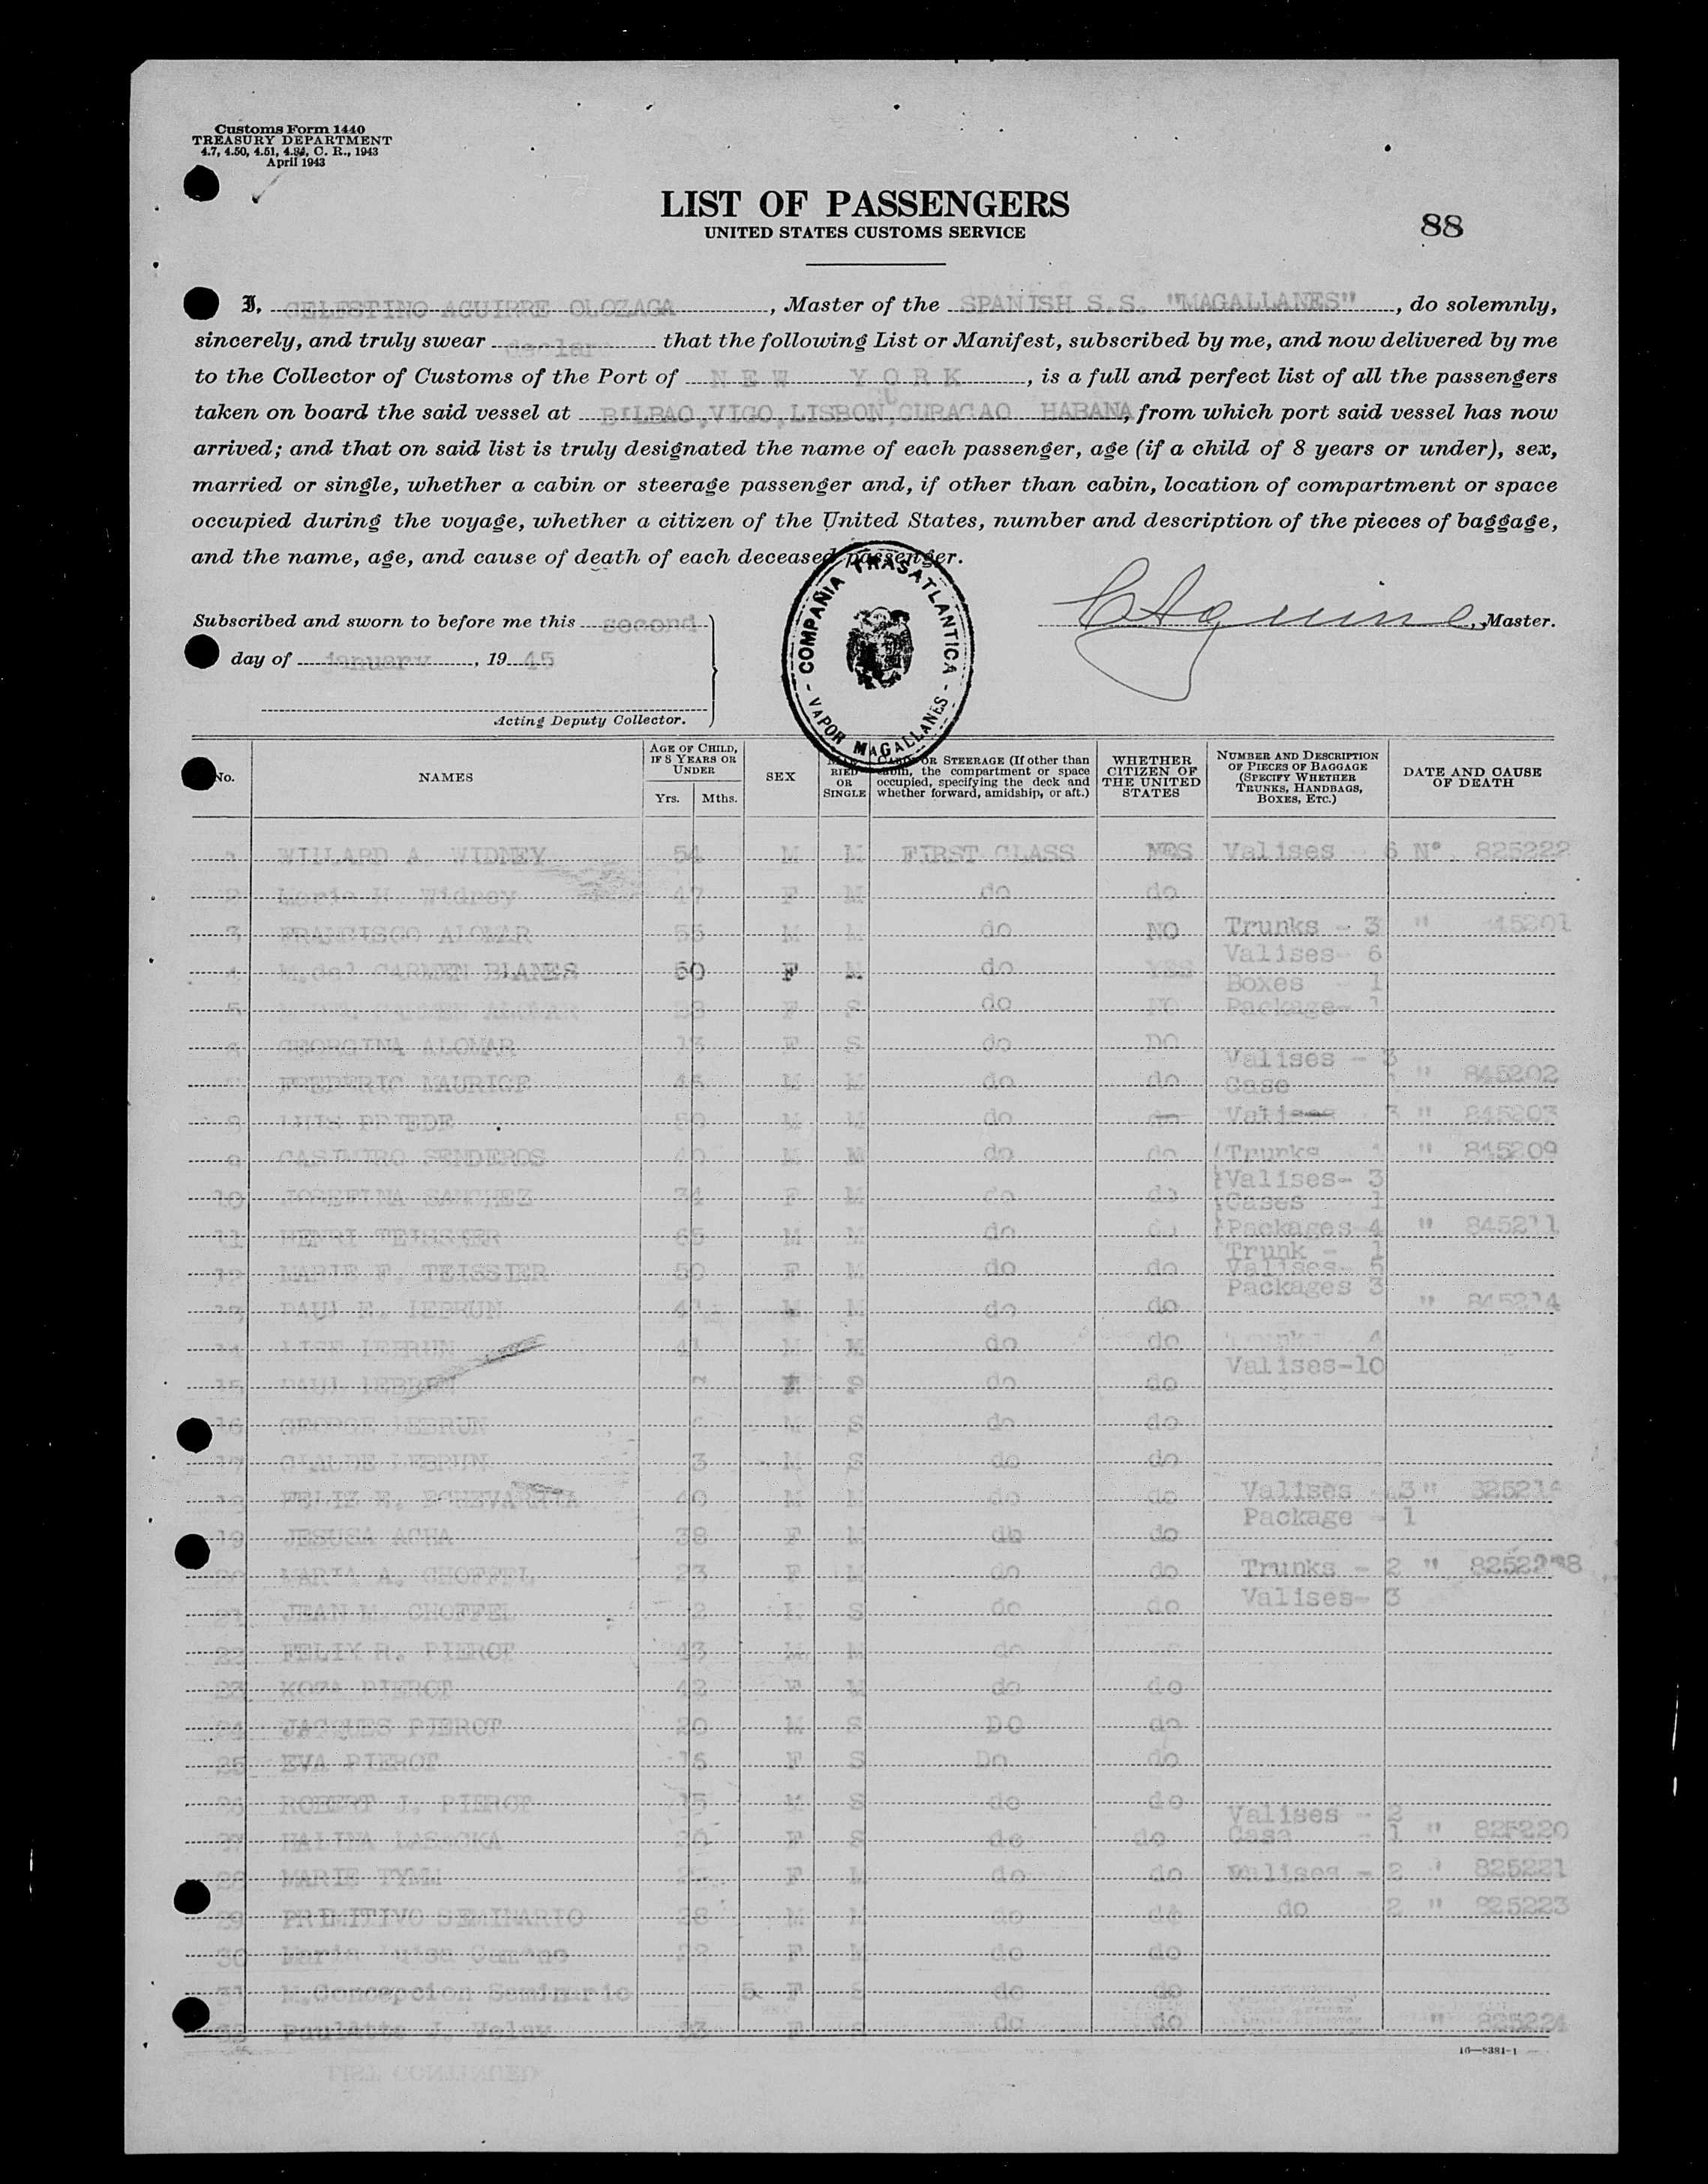 Customs Form 1440
TREASURY DEPARTMENT
4.7, 4.50, 4.51, 4.84, C. R., 1943
April 1943
LIST OF PASSENGERS
UNITED STATES CUSTOMS SERVICE
88
I, CELESTINO AGUIRRE OLOZAGA, Master of the SPANISH S.S. "MAGALLANES", do solemnly,
sincerely, and truly swear declar that the following List or Manifest, subscribed by me, and now delivered by me
to the Collector of Customs of the Port of NEW YORK, is a full and perfect list of all the passengers
taken on board the said vessel at BILBAO, VIGO, LISBON, CURACAO HABANA, from which port said vessel has now
arrived; and that on said list is truly designated the name of each passenger, age (if a child of 8 years or under), sex,
married or single, whether a cabin or steerage passenger and, if other than cabin, location of compartment or space
occupied during the voyage, whether a citizen of the United States, number and description of the pieces of baggage,
and the name, age, and cause of death of each deceased passenger.
COMPAÑIA TRASATLANTICA - VAPOR MAGALLANES -
CAguirre, Master.
Subscribed and sworn to before me this second
day of january, 1945
Acting Deputy Collector.
No. NAMES AGE OF CHILD, IF 8 YEARS OR UNDER Yrs. Mths. SEX MARRIED OR SINGLE CABIN OR STEERAGE (If other than cabin, the compartment or space occupied, specifying the deck and whether forward, amidship, or aft.) WHETHER CITIZEN OF THE UNITED STATES NUMBER AND DESCRIPTION OF PIECES OF BAGGAGE (SPECIFY WHETHER TRUNKS, HANDBAGS, BOXES, ETC.) DATE AND CAUSE OF DEATH
1 WILLARD A. WIDNEY 54 M M FIRST CLASS YES Valises - 6 Nº 825222
2 H. Widney 47 F M do do
3 FRANCISCO ALOMAR 55 M M do NO Trunks - 3 " 45201
Valises- 6
4 M.del CARMEN BLANES 50 F M do YES Boxes - 1
5 M. DEL CARMEN ALOMAR F S do NO Package- 1
6 GEORGINA ALOMAR 13 F S do DO
Valises - 3
FREDERIC MAURICE 45 M M do do Case 1 " 845202
8 LUIS PRIEDE 50 M M do Valises 3 " 845203
9 CASIMIRO SENDEROS 40 M M do do Trunks 1 " 845209
Valises- 3
10 JOSEFINA SANCHEZ 34 F M do do Cases 1
11 HENRI TEISSIER 65 M M do do Packages 4 " 845211
Trunk - 1
12 MARIE F. TEISSIER 50 F M do do Valises- 5
Packages 3
13 PAUL E. LEBRUN M do do " 845214
14 LISE LEBRUN 41 M M do do 4
Valises-10
15 PAUL LEBRUN 7 S do do
16 GEORGE LEBRUN M S do do
17 CLAUDE LEBRUN 3 M S do do
18 FELIX E. ECHEVARRIA 40 M M do do Valises - 3 "
Package - 1
19 JESUSA ACHA 38 F M do do
20 MARIA A. CHOFFEL 23 F M do do Trunks - 2 "
21 JEAN M. CHOFFEL 2 M S do do Valises- 3
22 FELIX R. PIEROT 43 M M do
23 ROZA PIEROT 42 F M do do
24 JACQUES PIEROT 20 M S DO do
25 EVA PIEROT 16 F S Do do
26 ROBERT J. PIEROT 15 M S do do
Valises - 2
27 HALINA LASACKA 20 F S do do Case - 1 " 825220
28 MARIE TYML F M do do Valises - 2 " 825221
29 PRIMITIVO SEMINARIO 38 M M do do do 2 " 825223
30 Maria Luisa F M do do
31 M.Concepcion Seminario 5 F S do do
32 Paulette J. F do do " 825224
16—8381-1
LIST CONTINUED